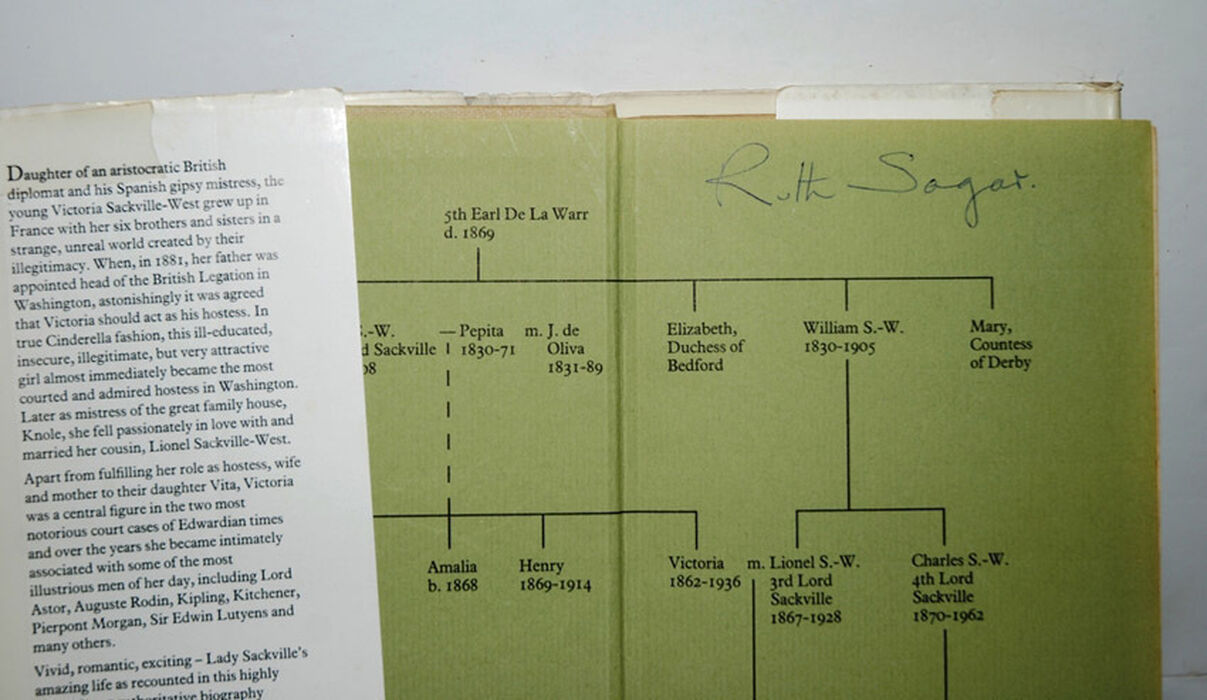 Daughter of an aristocratic British
diplomat and his Spanish gipsy mistress, the
young Victoria Sackville-West grew up in
France with her six brothers and sisters in a
strange, unreal world created by their
illegitimacy. When, in 1881, her father was
appointed head of the British Legation in
Washington, astonishingly it was agreed
that Victoria should act as his hostess. In
true Cinderella fashion, this ill-educated,
insecure, illegitimate, but very attractive
girl almost immediately became the most
courted and admired hostess in Washington.
Later as mistress of the great family house,
Knole, she fell passionately in love with and
married her cousin, Lionel Sackville-West.
Apart from fulfilling her role as hostess, wife
and mother to their daughter Vita, Victoria
was a central figure in the two most
notorious court cases of Edwardian times
and over the years she became intimately
associated with some of the most
illustrious men of her day, including Lord
Astor, Auguste Rodin, Kipling, Kitchener,
Pierpont Morgan, Sir Edwin Lutyens and
many others.
Vivid, romantic, exciting – Lady Sackville's
amazing life as recounted in this highly
biography
Ruth Sagar.
5th Earl De La Warr
d. 1869
S.-W.
Sackville
Pepita
1830-71
m. J. de
Oliva
1831-89
Elizabeth,
Duchess of
Bedford
William S.-W.
1830-1905
Mary,
Countess
of Derby
Amalia
b. 1868
Henry
1869-1914
Victoria
1862-1936
m. Lionel S.-W.
3rd Lord
Sackville
1867-1928
Charles S.-W.
4th Lord
Sackville
1870-1962